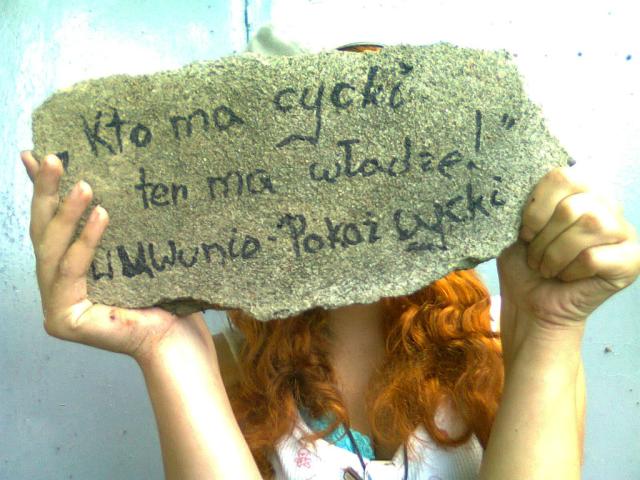 „Kto ma cycki
ten ma władzę!”
WMWunio-Pokaż cycki